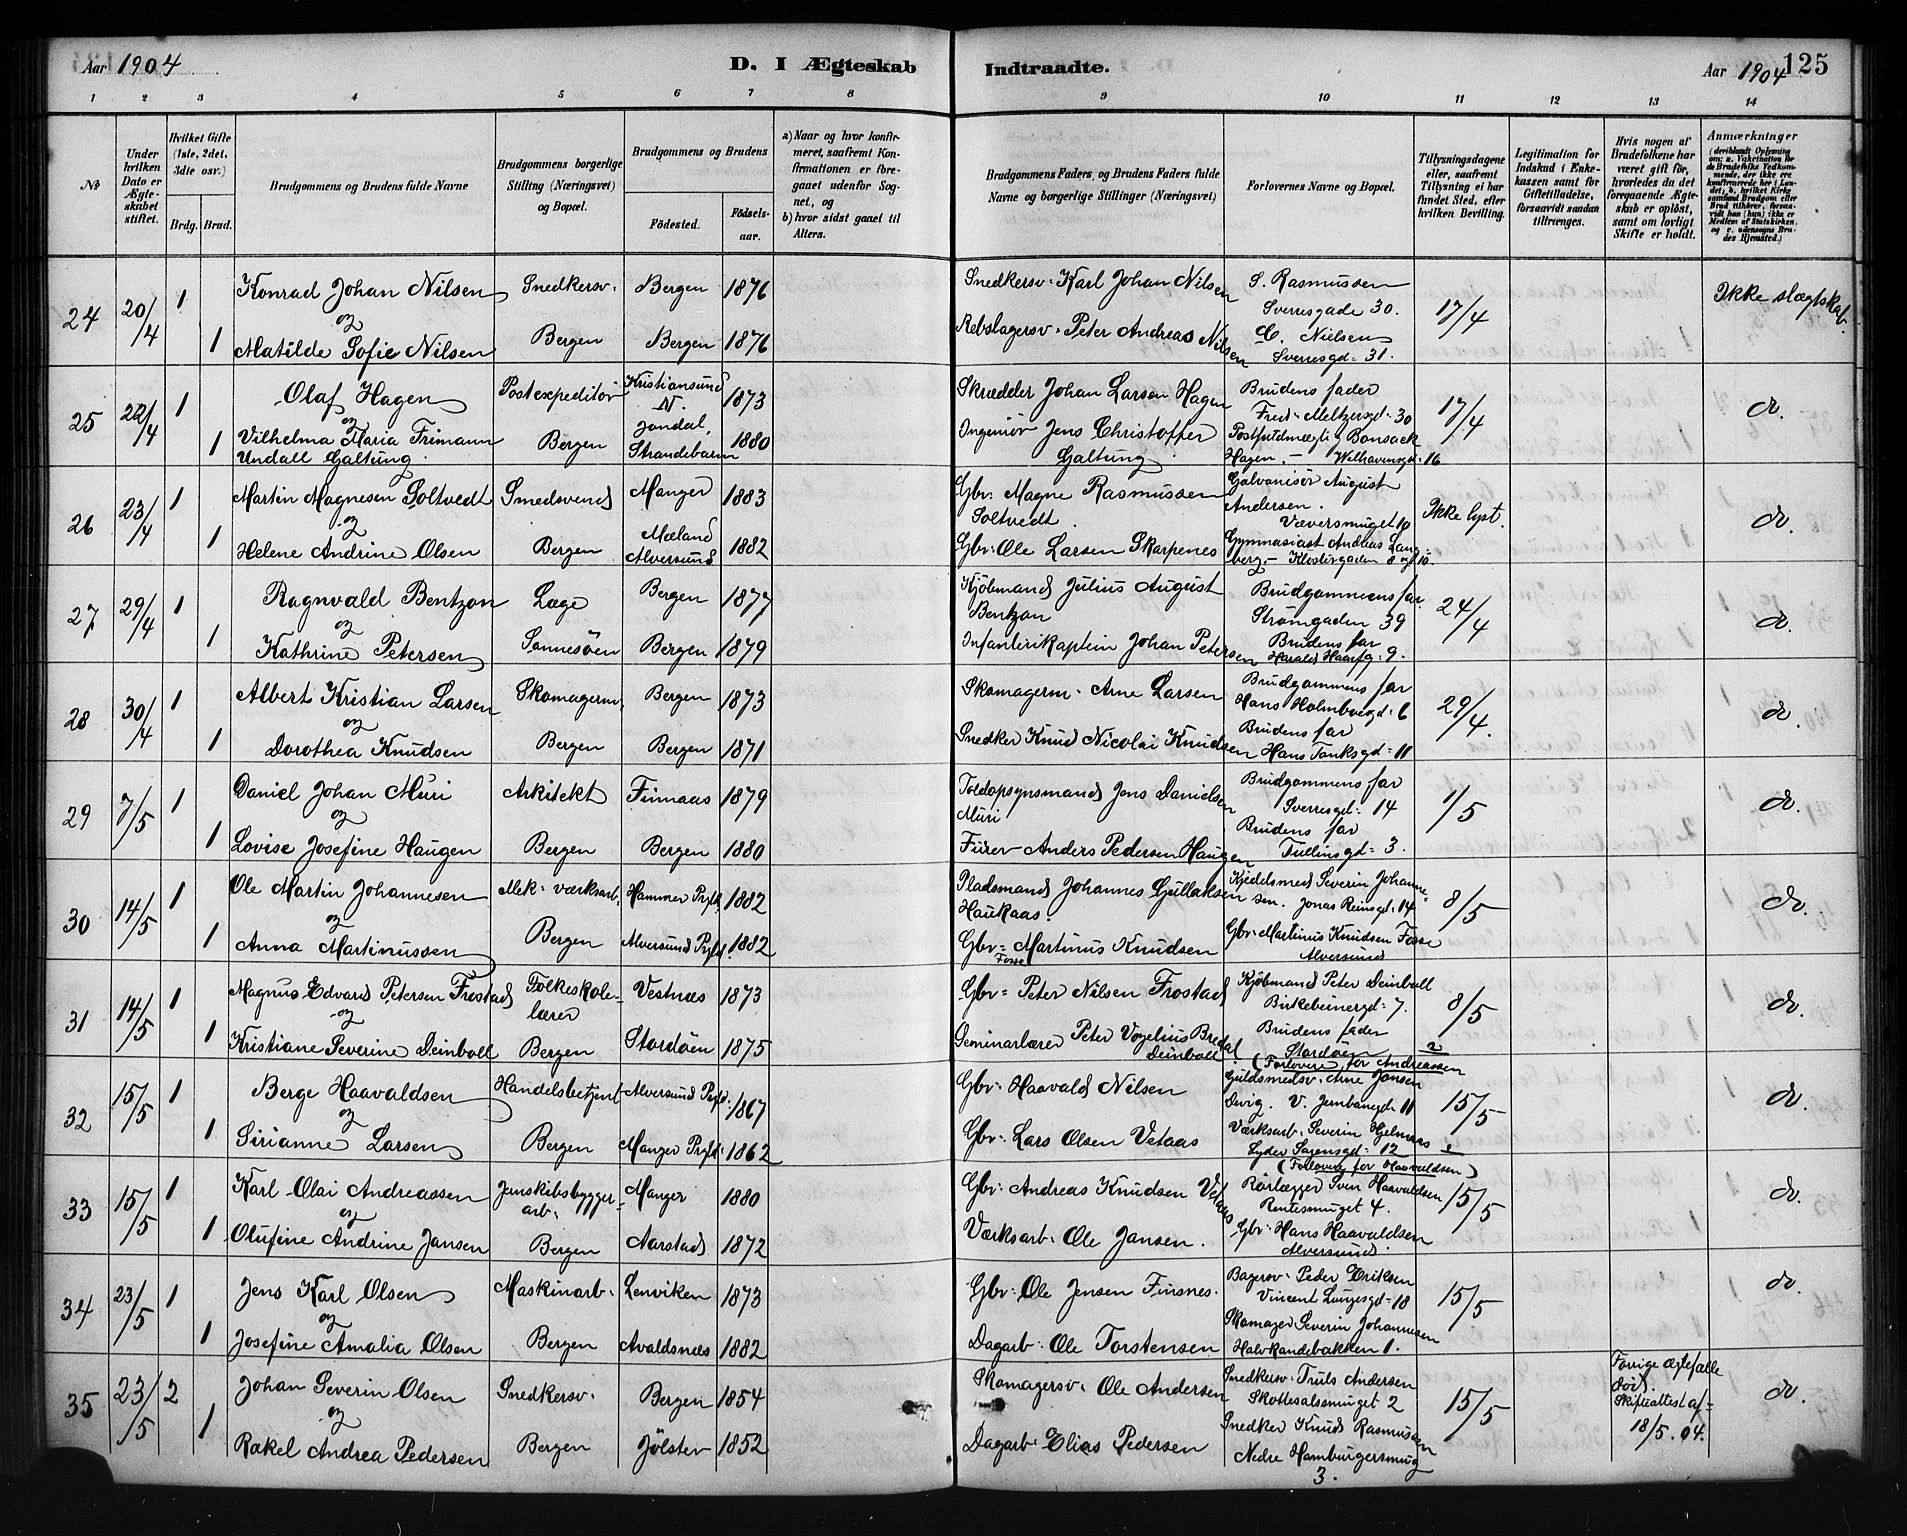 Aar 1904
D. I Ægteskab
Indtraadte.
Aar 1904
125
1 2 3 4 5 6 7 8 9 10 11 12 13 14
№
Under hvilken Dato er Ægteskabet stiftet.
Hvilket Gifte (1ste, 2det, 3die osv.)
Brdg. Brud.
Brudgommens og Brudens fulde Navne
Brudgommens borgerlige Stilling (Næringsvei) og Bopæl.
Brudgommens og Brudens
Fødested.
Fødselsaar.
a) Naar og hvor konfirmeret, saafremt Konfirmationen er foregaaet udenfor Sognet, og
b) hvor sidst gaaet til Alters.
Brudgommens Faders, og Brudens Faders fulde Navne og borgerlige Stillinger (Næringsvei)
Forlovernes Navne og Bopæl.
Tillysningsdagene eller, saafremt Tillysning ei har fundet Sted, efter hvilken Bevilling.
Legitimation for Indskud i Enkekassen samt for Giftetilladelse, forsaavidt saadan tiltrænges.
Hvis nogen af Brudefolkene har været gift før, hvorledes da det foregaaende Ægteskab er opløst, samt om lovligt Skifte er holdt.
Anmærkninger
24 20/4 1 Konrad Johan Nilsen Snedkersv. Bergen 1876 Snedkersv. Karl Johan Nilsen S. Rasmussen Sverresgade 30. 17/4 Ikke slægtskab.
og
1 Matilde Sofie Nilsen Bergen Bergen 1876 Rebslagersv. Peter Andreas Nilsen C. Nielsen Sverresgd. 31.
25 22/4 1 Olaf Hagen Postexpeditør Kristiansund N. 1873 Skrædder Johan Larsen Hagen Brudens fader Fred. Meltzersgd. 30 17/4 do.
og
1 Vilhelma Maria Frimann Undall Galtung. Bergen Jondal, Strandebarm 1880 Ingeniør Jens Christoffer Galtung Postfuldmægtig Bonsack Hagen. – Welhavensgd. 16
26 23/4 1 Martin Magnesen Soltvedt Smedsvend Manger 1883 Gbr. Magne Rasmussen Soltvedt. Galvanisør August Andersen. Væversmuget 10 Ikke lyst. do.
og
1 Helene Andrine Olsen Bergen Mæland Alversund 1882 Gbr. Ole Larsen Skarpenes Gymnasiast Andreas Langberg. – Klostergaden 8 og 10.
27 29/4 1 Ragnvald Bentzon Læge Bergen 1877 Kjøbmand Julius August Bentzon Brudgommens far. Strømgaden 39 24/4 do.
og
1 Kathrine Petersen Sannesöen Bergen 1879 Infanterikaptein Johan Petersen Brudens far Harald Haarfg. 9.
28 30/4 1 Albert Kristian Larsen Skomagerm. Bergen 1873 Skomagerm. Arne Larsen Brudgommens far Hans Holmboegd. 6 29/4. do.
og
1 Dorothea Knudsen Bergen Bergen 1871 Snedker Knud Nicolai Knudsen Brudens far Hans Tanksgd. 11
29 7/5 1 Daniel Johan Muri Arkitekt Finnaas 1879 Toldopsynsmand Jens Danielsen Muri Brudgommens far Sverresgd. 14 1/5 do.
og
1 Lovise Josefine Haugen Bergen Bergen 1880 Furer Anders Pedersen Haugen Brudens far Tullinsgd. 3.
30 14/5 1 Ole Martin Johannesen Mek. værksarb. Hammer Prgld. 1882 Pladsmand Johannes Gullaksen Haukaas. Kjedelsmed Severin Johannesen. Jonas Reinsgd. 14 8/5 do.
og
1 Anna Martinussen Bergen Alversund Prgld. 1882 Gbr. Martinus Knudsen Fosse Gbr. Martinus Knudsen Fosse Alversund
31 14/5 1 Magnus Edvard Petersen Frostad Folkeskolelærer Vestnæs 1873 Gbr. Peter Nilsen Frostad Kjøbmand Peter Deinboll Birkebeinergd. 7. 8/5 do.
og
1 Kristiane Severine Deinboll Bergen Stordöen 1875 Seminarlærer Peter Vogelius Bredal Deinboll Brudens fader Stordöen
32 15/5 1 Berge Haavaldsen Handelsbetjent Alversund Prgld. 1867 Gbr. Haavald Nilsen (Forlovere for Andreassen Guldsmedsv. Arne Jansen Devig. V. Jernbanegd. 11 15/5 do.
og
1 Sirianne Larsen Bergen Manger Prgld. 1862 Gbr. Lars Olsen Vetaas Værksarb. Severin Hjelmaas Lyder Sagensgd. 12
33 15/5 1 Karl Olai Andreassen Jernskibsbyggerarb. Manger 1880 Gbr. Andreas Knudsen Vetaas (Forlovere for Haavaldsen) Rørlægger Sven Haavaldsen Rentesmuget 4. 15/5 do.
og
1 Olufine Andrine Jansen Bergen Aarstad 1872 Værksarb. Ole Jansen. Gbr. Hans Haavaldsen Alversund.
34 23/5 1 Jens Karl Olsen Maskinarb. Lenviken 1873 Gbr. Ole Jensen Finsnes. Bagersv. Peder Eriksen Vincent Lungesgd. 18 15/5 do.
og
1 Josefine Amalia Olsen Bergen Avaldsnæs 1882 Dagarb. Ole Torstensen Skomager Severin Johannesen Halvkandebakken 1.
35 23/5 2 Johan Severin Olsen Snedkersv. Bergen 1854 Skomagersv. Ole Andersen Snedkersv. Truls Andersen Skottesalssmuget 2 15/5 Forrige ægtefælle død. Skifteattest af 18/5.04. do.
og
1 Rakel Andrea Pedersen Bergen Jölster 1852 Dagarb. Elias Pedersen Snedker Knud Rasmussen Nedre Hamburgersmug 3.